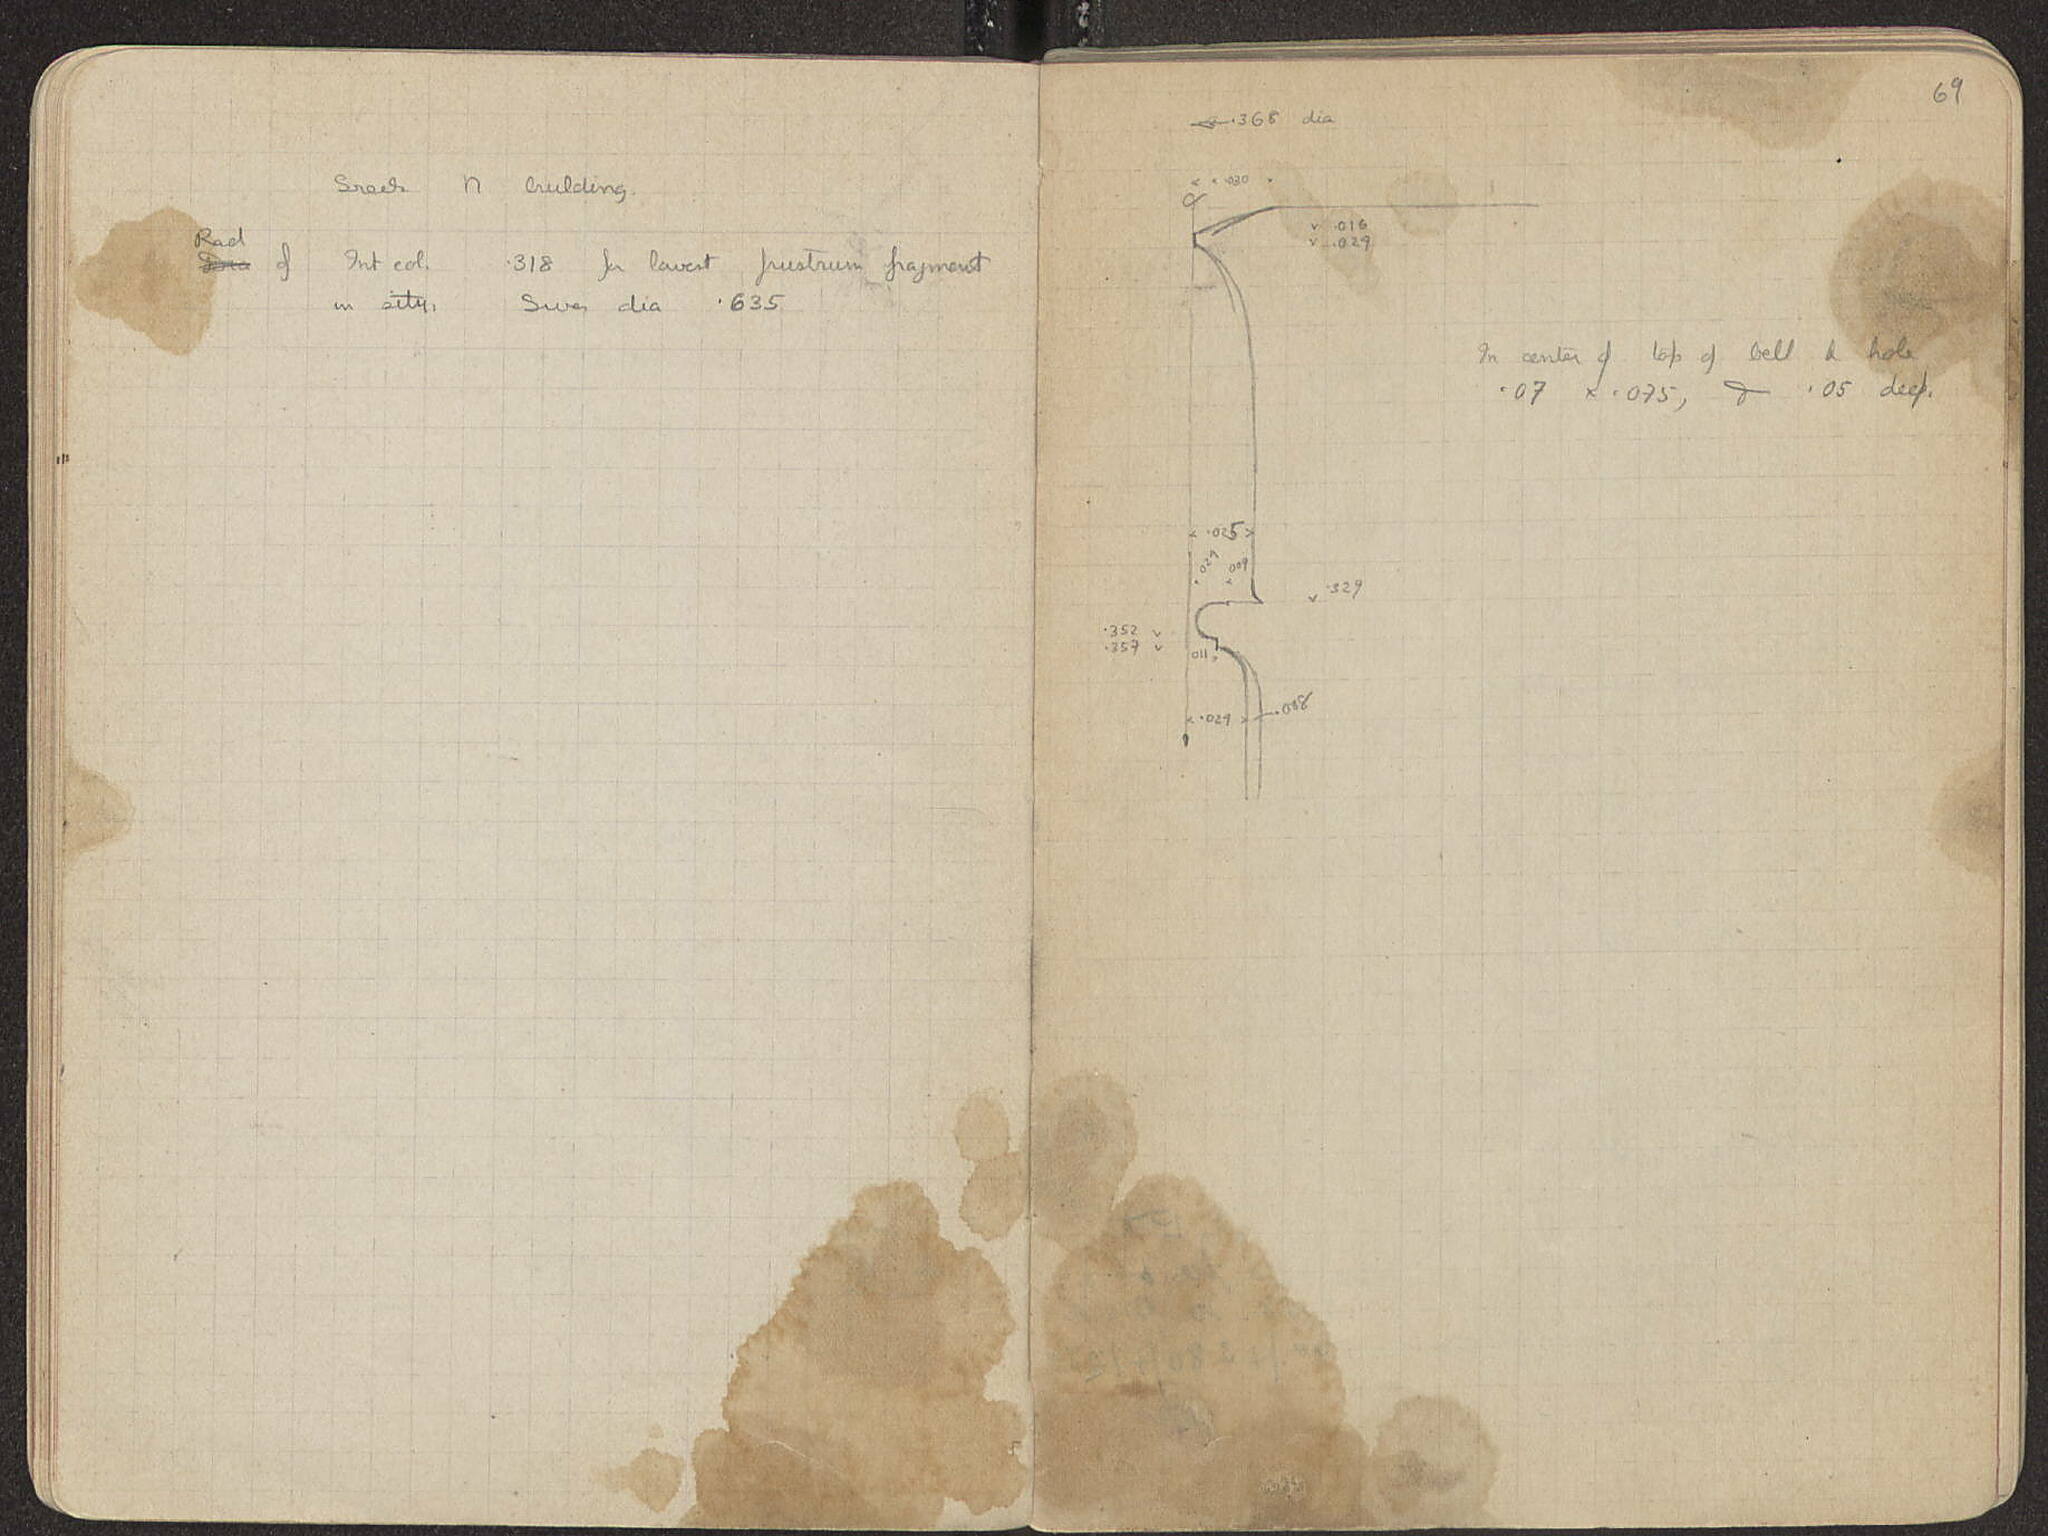 N building.
Rad
Dia of Int col. .318 for lowest frustrum fragment
in situ. dia .635
69
.368 dia
.030
.016
.029
In center of top of bell a hole
.07 x .075, & .05 deep.
.025
.027 .009
.329
.352
.357
.011
.029 .008